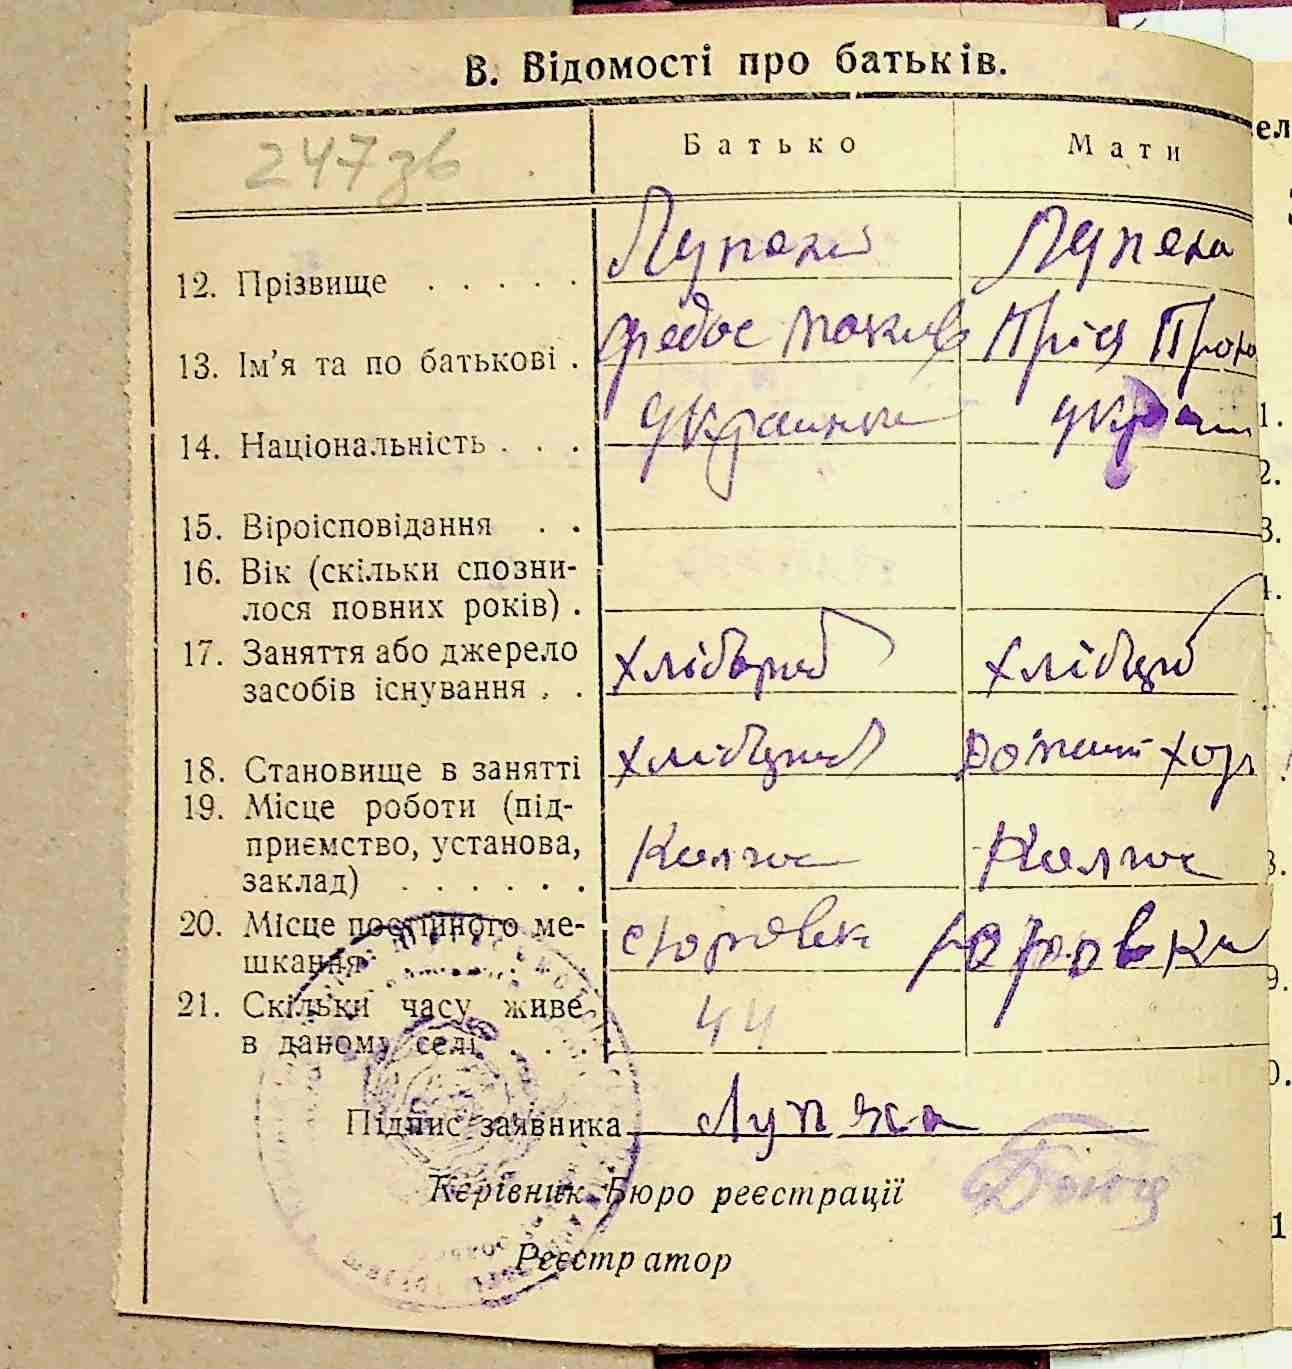 В. Відомості про батьків.
247зв
Батько Мати
12. Прізвище . . . . . Лупека Лупека
13. Ім'я та по батькові . Федос Яків Прися Проко
14. Національність . . . украинец украин
15. Віроісповідання . .
16. Вік (скільки спозни-
лося повних років) .
17. Заняття або джерело
засобів існування . . хлібороб хлібороб
18. Становище в занятті хлібороб домаш хоз
19. Місце роботи (під-
приємство, установа,
заклад) . . . . . . Колгос Колгос
20. Місце постійного ме-
шкання Юровка
21. Скільки часу живе
в даному селі . . . . 44
Підпис заявника Лупека
Керівник Бюро реєстрації
Реєстратор